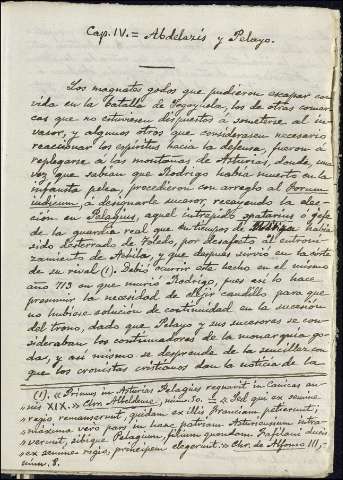 Cap. IV. = Abdelazis y Pelayo.
Los magnates godos que pudieron escapar con
vida en la batalla de Segoyuela, los de otras comar-
cas que no estuviesen dispuestos á someterse al in-
vasor, y algunos otros que considerasen necesario
reaccionar los espíritus hacia la defensa, fueron á
replegarse á las montañas de Asturias, donde, una
vez que sabian que Rodrigo habia muerto en la
infausta pelea, procedieron con arreglo al Forum
iudicum, á designarle sucesor, recayendo la elec-
ción en Pelagius, aquel intrépido spatarius ó gefe
de la guardia real que en tiempos de Witiza habia
sido desterrado de Toledo, por desafecto al entroni-
zamiento de Achila, y que despues sirvió en la corte
de su rival (1). Debió ocurrir este hecho en el mismo
año 713 en que murió Rodrigo, pues así lo hace
presumir la necesidad de elejir caudillo para que
no hubiese solución de continuidad en la sucesión
del trono, dado que Pelayo y sus sucesores se con-
sideraban los continuadores de la monarquia go-
da, y así mismo se desprende de la sencillez con
que los cronistas cristianos dan la noticia de la
(1). « Primus in Asturias Pelagius regnavit in Canicas an-
nis XIX. » Chr. Albeldense, núm. 50. = « Sed qui ex semine
regio remanserunt, quidam ex illis Franciam petierunt;
maxima vero pars in hanc patriam Asturiensium intra-
verunt, sibique Pelagium, filium quondam Fafilani ducis
ex semine regio, principem elegerunt. » Chr. de Alfonso III,
núm. 8.